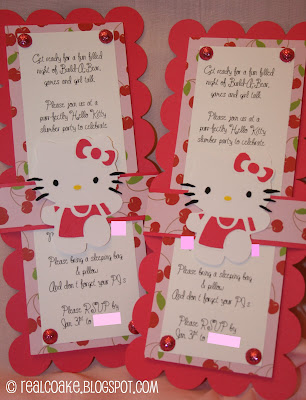 Get ready for a fun filled
night of Build-A-Bear,
games and girl talk.
Please join us at a
purr-fectly "Hello" Kitty
slumber party to celebrate
Please bring a sleeping bag
& pillow
And don't forget your PJ's
Please RSVP by
Jan 3rd to
Get ready for a fun filled
night of Build-A-Bear,
games and girl talk.
Please join us at a
purr-fectly "Hello" Kitty
slumber party to celebrate
Please bring a sleeping bag
& pillow
And don't forget your PJ's
Please RSVP by
Jan 3rd to
© realcoake.blogspot.com